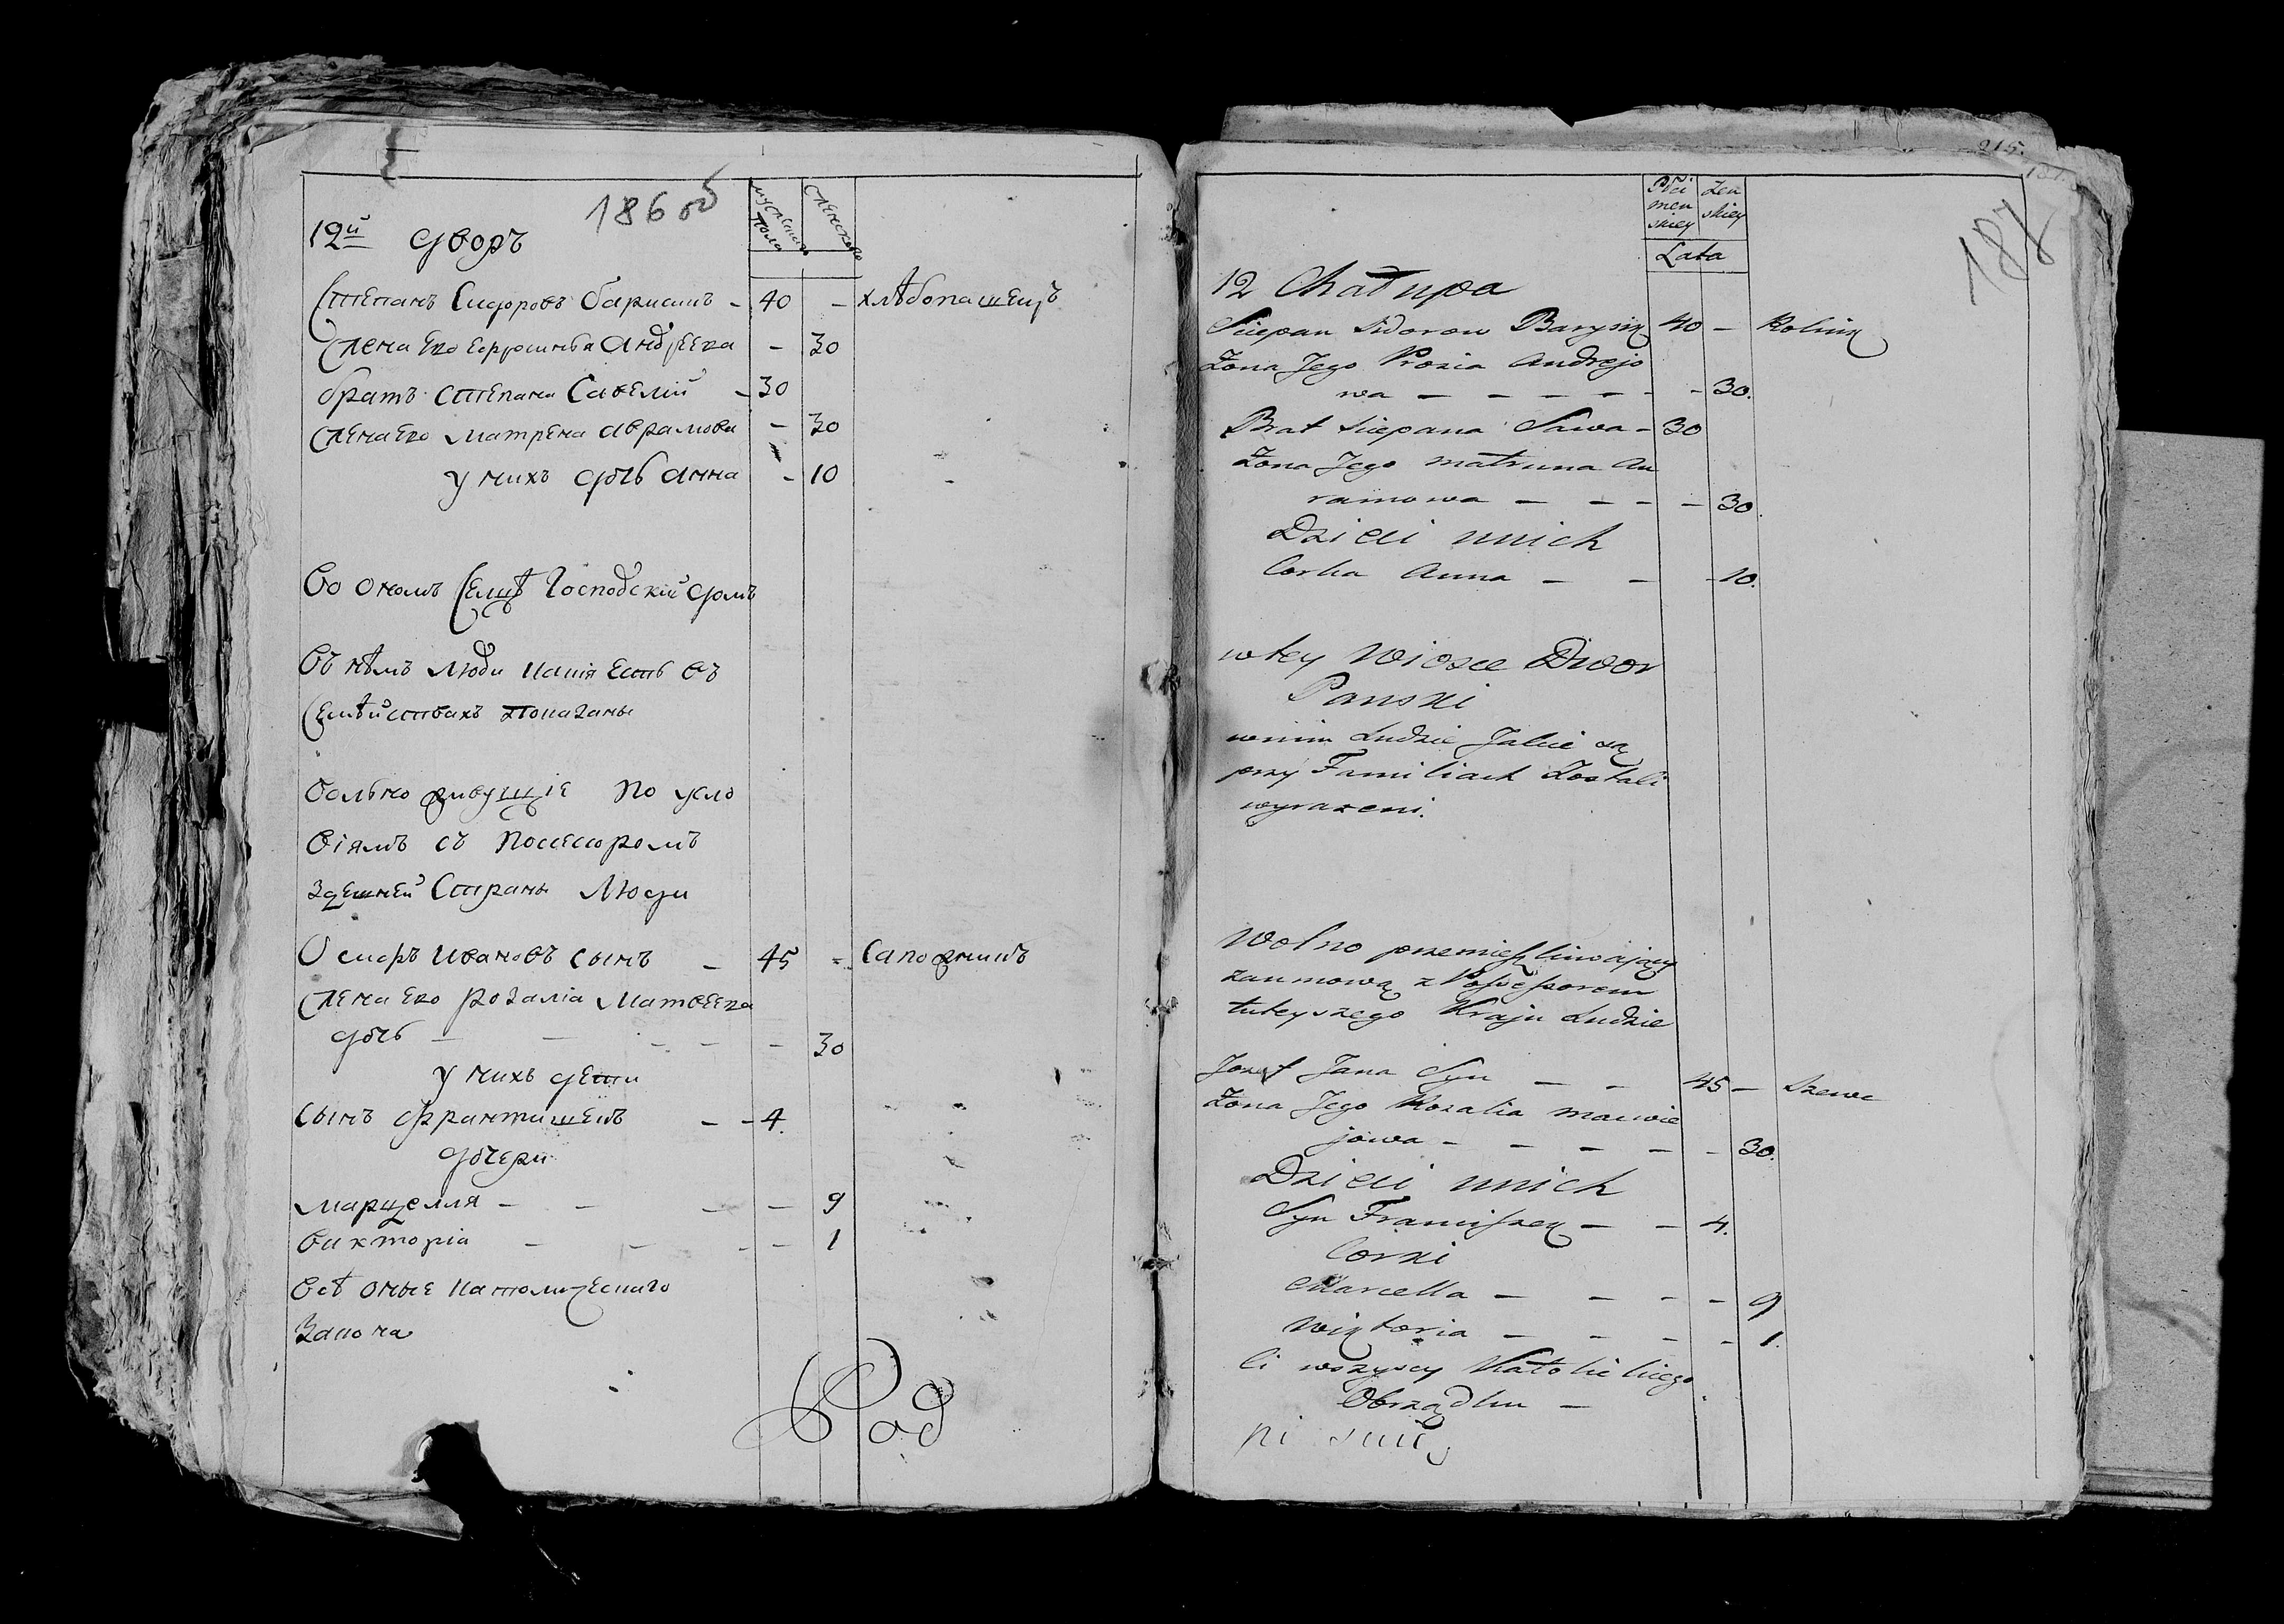 186 об
мужеска пола
женска
12й дворъ
Степанъ Сидоровъ Барысикъ - 40 - хлѣбопашецъ
Жена Его Ефросинья Андреева - 30
братъ Степана Савелий - 30
Жена Его Матрена Аврамова - 30
у нихъ дочь Анна - 10
Во ономъ Селцѣ Господский домъ
Въ нѣмъ Люди какія Есть въ
Семѣйствахъ Показаны
Вольно живущіе По усло
віямъ съ Поссессоромъ
Здешней Страны Люди
Осипъ Ивановъ сынъ - 45 - Сапожникъ
Жена Его Розалія Матвеева
дочь - - - - - 30
у нихъ дети
Сынъ Францишекъ - - 4.
дочери
Марцелля - - - - 9
Викторіа - - - - 1
Всѣ оные Католическаго
Закона
215.
187
Płci men skiey
Żen skiey
Lata
12 Chałupa
Sciepan Sidorow Barysik 40 - Rolnik
Żona Jego Prosia Andrejo
wa - - - - - - 30.
Brat Sciepana Sawa - 30
Żona Jego Matruna Au
ramowa - - - - 30.
Dzieci unich
Corka Anna - - - 10.
wtey Wiosce Dwor
Panski
wnim Ludzie Jakie są
przy Familiach Zostali
wyrażeni.
Wolno przemieszkiwający
zaumową z Possessorem
tuteyszego Kraju Ludzie
Jozef Jana Syn - - 45 - Szewc
Żona Jego Rozalia Maciwie
jowa - - - - - 30.
Dzieci unich
Syn Franciszek - - 4.
Corki
Marcella - - - - 9
Wiktoria - - - - 1.
Ci wszyscy Katolickiego
Obrządku -